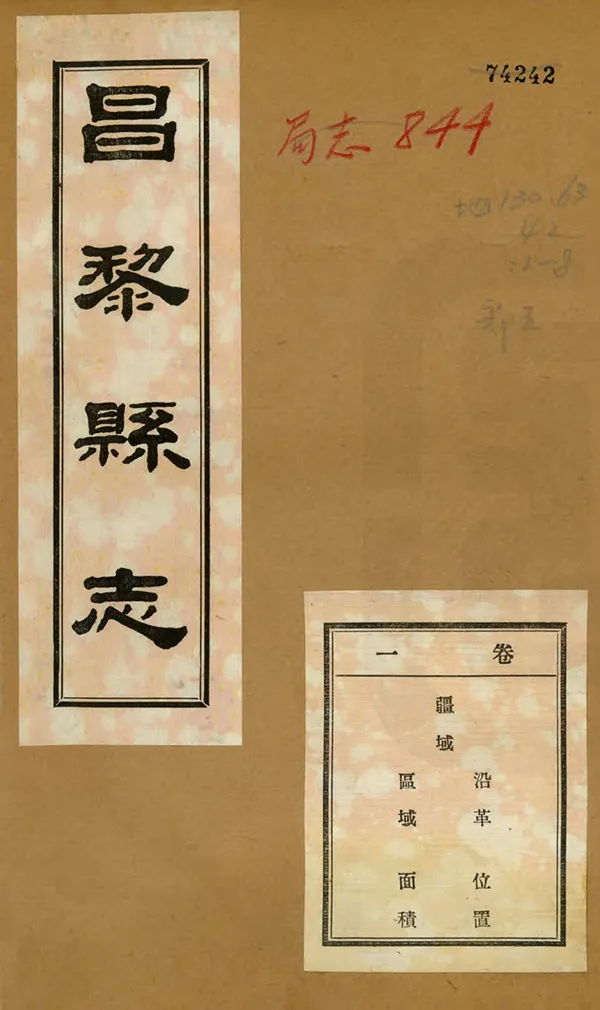 昌黎縣志
74242
局志 844
地130.63
42
:1-8
卷一
疆域
沿革 位置
區域 面積